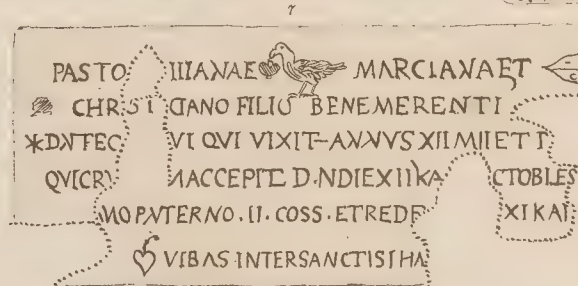 7
PASTO IIIANAE MARCIANAET
CHR STIANO FILIO BENEMERENTI
DN FEC VI QVI VIXIT ANNVS XII MII ET T
QVICRV ACCEPIT D.N DIEXIIKA CTOBLES
MO PVTERNO.II.COSS.ETREDE XI KAI
VIBAS INTERSANCTIS IHA